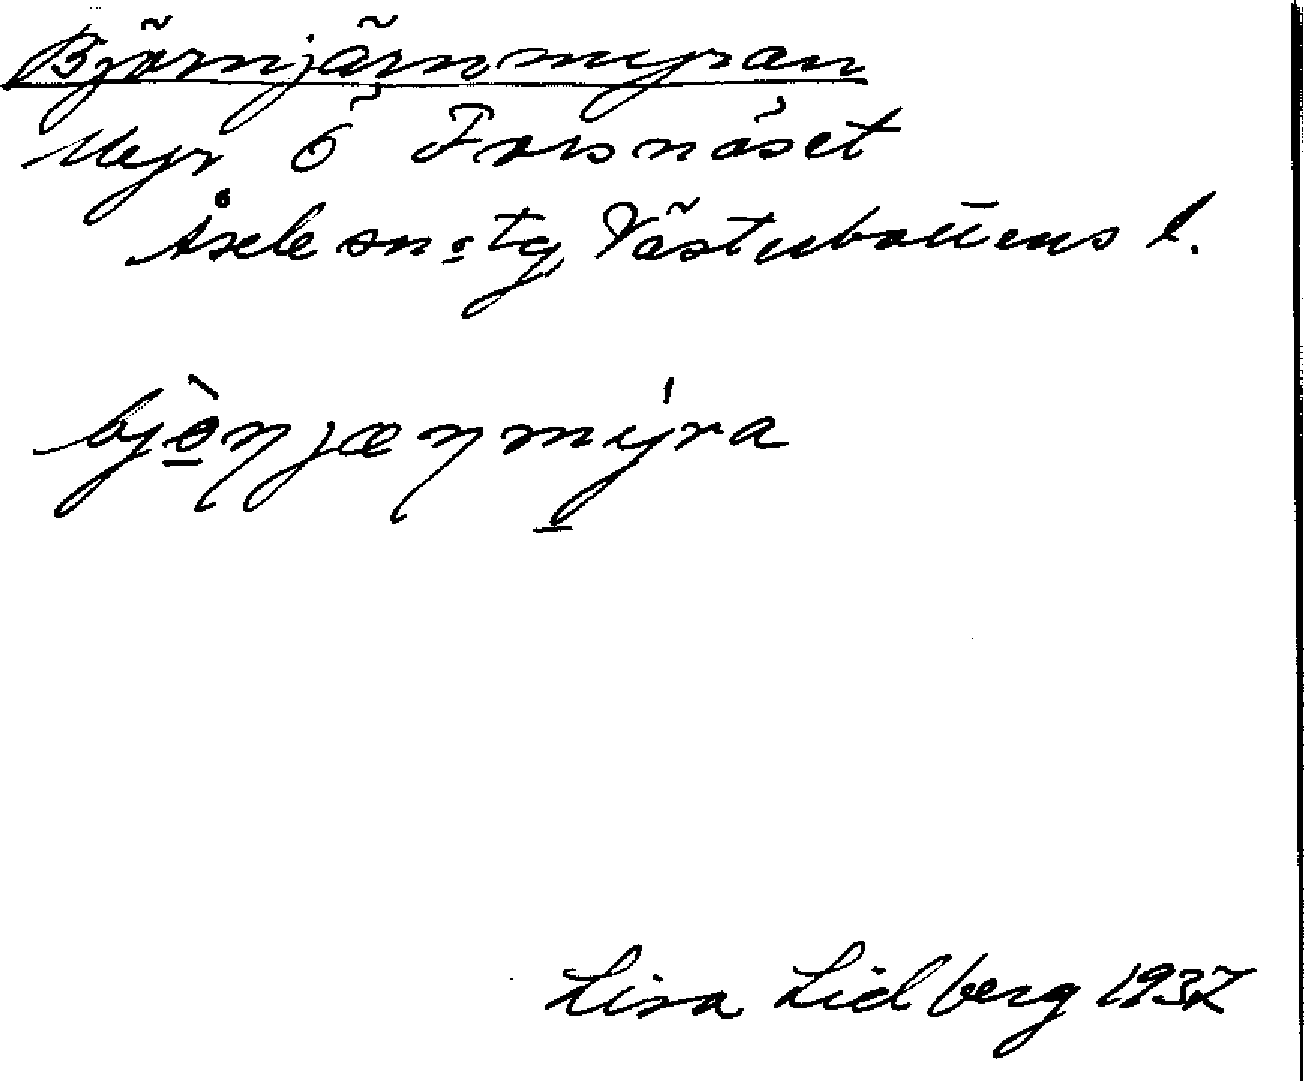 Björnjärnmyran
Myr Ö Forsnäset
Åsele sn o tg Västerbottens l.
bjò̲ŋjæŋmý̲ra
Lisa Lidberg 1937